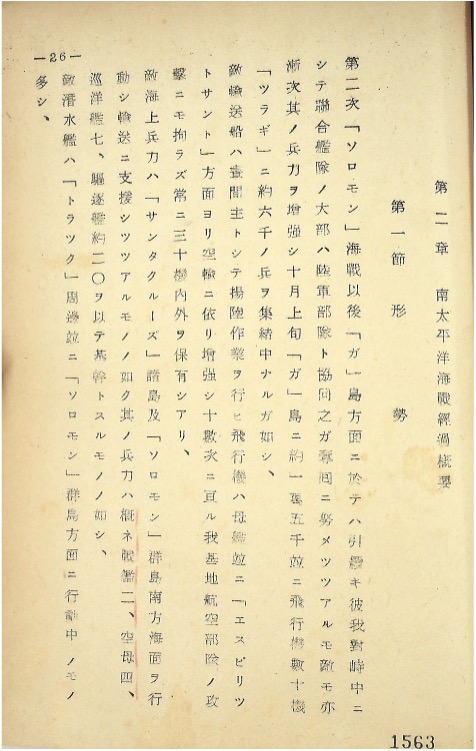 第二章　南太平洋海戰經過概要
第一節　形　勢
第二次「ソロモン」海戰以後「ガ」島方面ニ於テハ引續キ彼我對峙中ニ
シテ聯合艦隊ノ大部ハ陸軍部隊ト協同之ガ奪回ニ努メツツアルモ敵モ亦
漸次其ノ兵力ヲ增强シ十月上旬「ガ」島ニ約一萬五千竝ニ飛行機數十機
「ツラギ」ニ約六千ノ兵ヲ集結中ナルガ如シ、
敵輸送船ハ晝間主トシテ揚陸作業ヲ行ヒ飛行機ハ母艦竝ニ「エスピリツ
トサント」方面ヨリ空輸ニ依リ增强シ十數次ニ亘ル我基地航空部隊ノ攻
擊ニモ拘ラズ常ニ三十機內外ヲ保有シアリ、
敵海上兵力ハ「サンタクルーズ」諸島及「ソロモン」群島南方海面ヲ行
動シ輸送ニ支援シツツアルモノノ如ク其ノ兵力ハ槪ネ戰艦二、空母四、
巡洋艦七、驅逐艦約二〇ヲ以テ基幹トスルモノノ如シ、
敵潛水艦ハ「トラツク」周邊竝ニ「ソロモン」群島方面ニ行動中ノモノ
多シ、
—26—
1563